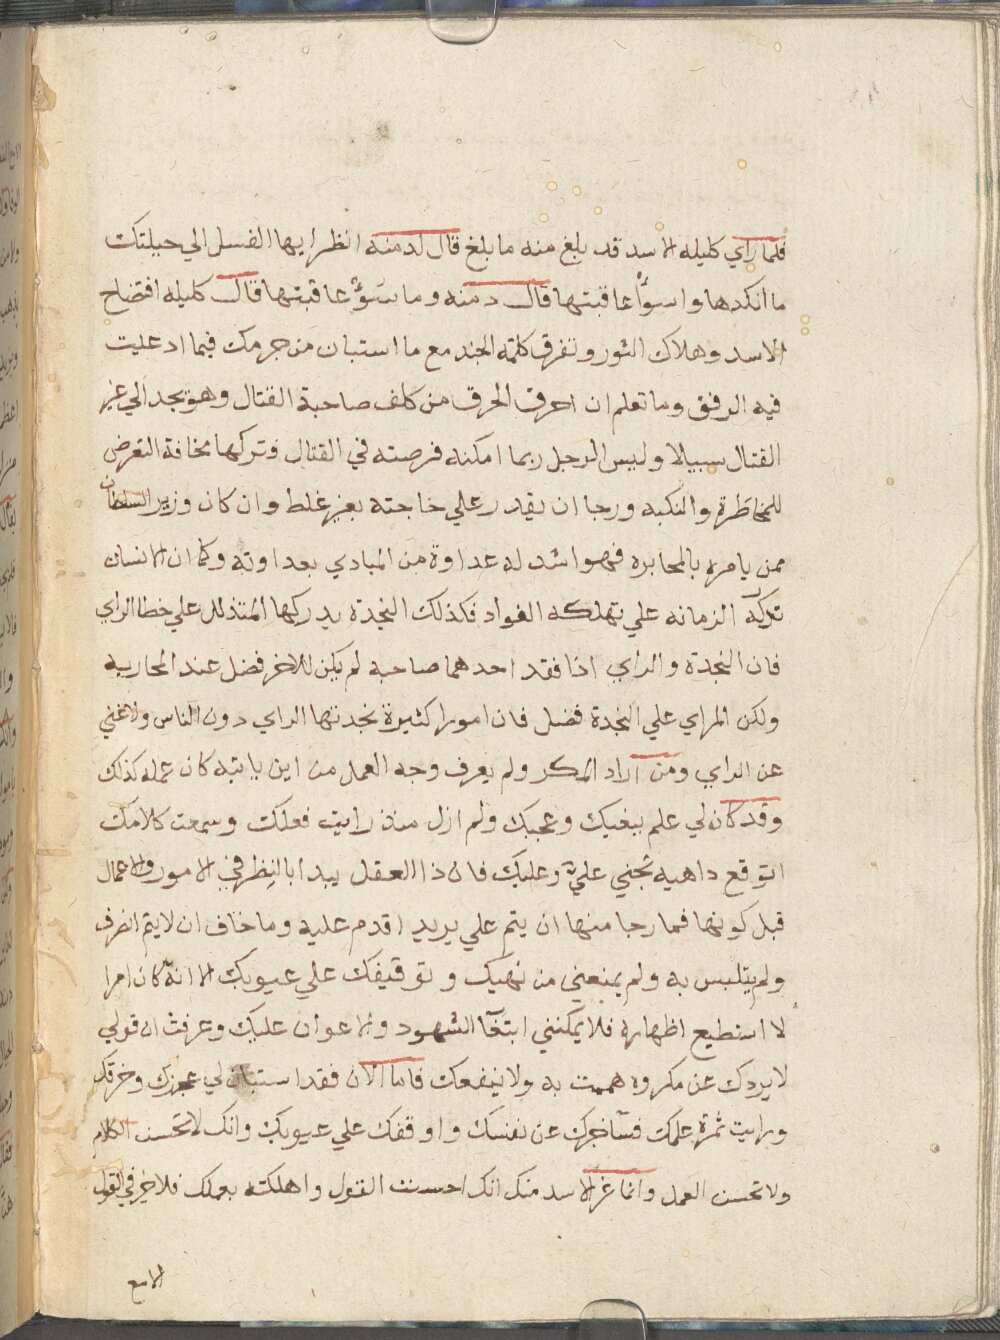 فلما راي كليله الاسد قد بلغ منه ما بلغ قال لدمنه انظر ايها الفسل الي حيلتك
ما انكدها واسوأ عاقبتها قال دمنه وما سَوُؤَ عاقبتها قال كليله افتضاح
الاسد وهلاك الثور وتفرق كلمة الجند مع ما استبان من جرمك فيما ادعيت
فيه الرفق وما تعلم ان اخرق الخرق من كلف صاحبة القتال وهو يجد الي غير
القتال سبيلا وليس الرجل ربما امكنه فرصته في القتال فتركها مخافة التعرض
للمخاطرة والنكبه ورجا ان يقدر علي حاجته بغير غلط وان كان وزير السلطان
ممن يامره بالمحابره فهو اشد له عداوة من المبادي بعداوته وكما ان الانسان
تدركه الزمانه علي تهلكه الفواد فكذلك النجدة يدركها المتذلل علي خطا الراي
فان النجدة والراي اذا فقد احدهما صاحبه لم يكن للاخر فضل عند المحاربه
ولكن للراي علي النجدة فضل فان امورا كثيرة نجدتها الراي دون الناس ولا غني
عن الراي ومن اراد المكر ولم يعرف وجه العمل من اين ياتيه كان عمله كذلك
وقد كان لي علم ببغيك وعجبك ولم ازل منذ رايت فعلك وسمعت كلامك
اتوقع داهيه تجني علي وعليك فان ذا العقل يبدا بالنظر في الامور والاعمال
قبل كونها فما رجا منها ان يتم علي يريد اقدم عليه وما خاف ان لا يتم انصرف
ولم يتلبس به ولم يمنعني من نهيك وتوقيفك علي عيوبك الا انه كان امرا
لا استطيع اظهاره فلا يمكنني ابتغا الشهود والاعوان عليك وعرفت ان قولي
لا يردك عن مكروه هممت به ولا ينفعك فاما الان فقد استبان لي عجزك وخرقك
ورايت ثمرة علمك فساخبرك عن نفسك واوقفك علي عيوبك وانك لا تحسن الكلام
ولا تحسن العمل وانما غر الاسد منك انك احسنت القول واهلكته بعملك فلا خير في القول
الا مع